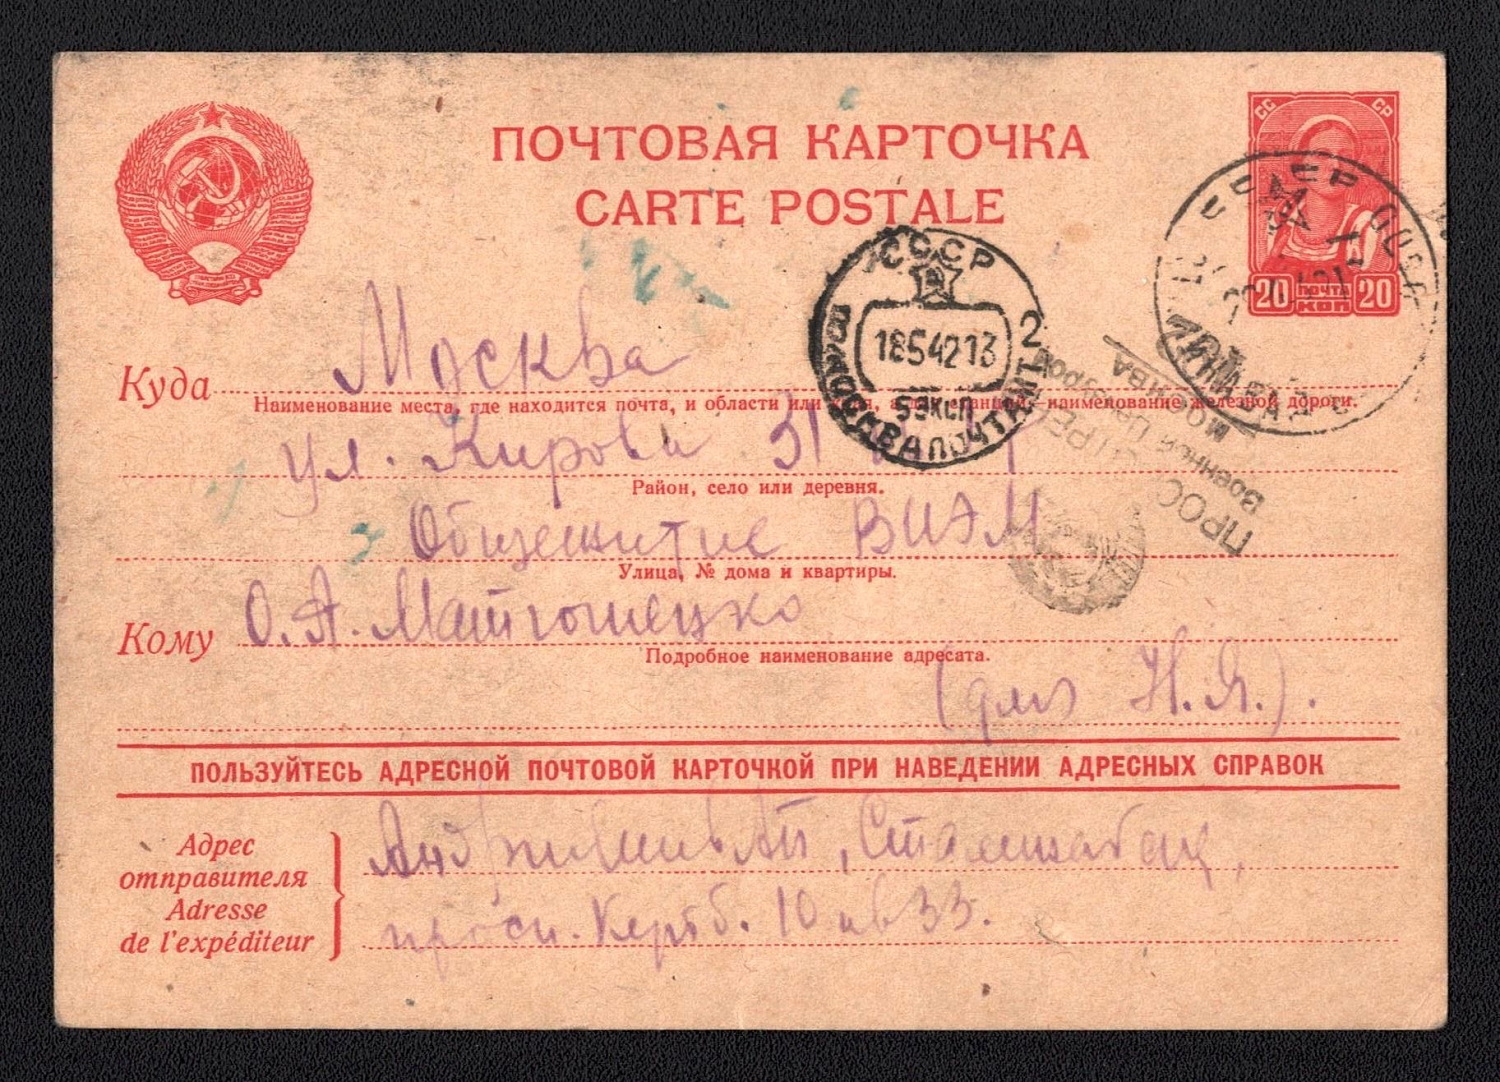 ПОЧТОВАЯ КАРТОЧКА
CARTE POSTALE
СС СР
20 ПОЧТА КОП 20
СССР
18 5 42 13
2
5 ЭКСП
МОСКВА ПОЧТАМТ
Куда Москва
Наименование места, где находится почта, и области или края, а для станций—наименование железной дороги.
ул. Кирова 31
Район, село или деревня.
Общежитие ВИЭМ
Улица, № дома и квартиры.
Кому О. А.
Подробное наименование адресата.
(для Н. Я.).
ПОЛЬЗУЙТЕСЬ АДРЕСНОЙ ПОЧТОВОЙ КАРТОЧКОЙ ПРИ НАВЕДЕНИИ АДРЕСНЫХ СПРАВОК
Адрес
отправителя
Adresse
de l'expéditeur
Сталинабад,
просп. 10 кв 33.
Военной Цензурой
МОСКВА